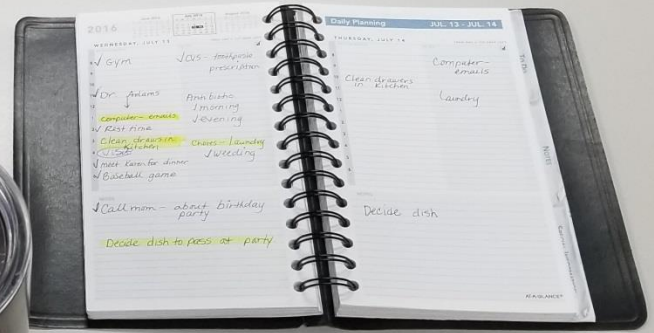 2016
WEDNESDAY, JULY 13
✓ Gym
✓ CVS - toothpaste
prescription
✓ Dr. Adams
Antibiotic
✓ morning
✓ evening
Computer - emails
✓ Rest time
Clean drawers in
Kitchen
Chores - laundry
✓ weeding
✓ meet Karen for dinner
✓ Baseball game
✓ Call mom - about birthday
party
Decide dish to pass at party.
Daily Planning
JUL. 13 - JUL. 14
THURSDAY, JULY 14
Computer -
emails
Clean drawers
in Kitchen
Laundry
Decide dish
AT-A-GLANCE
To Do
Notes